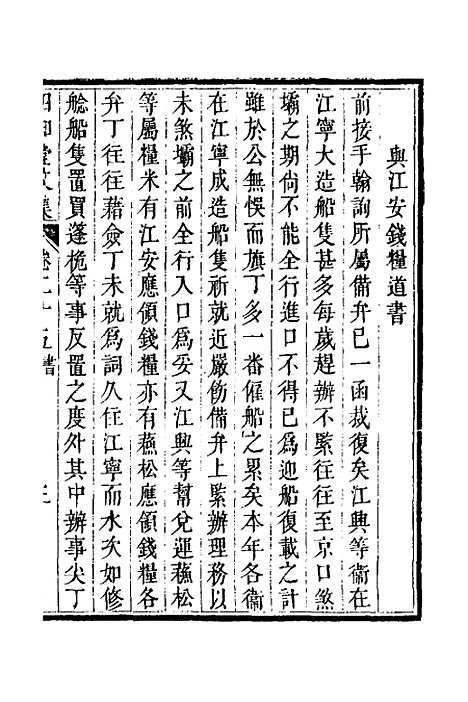 與江安錢糧道書
前接手翰詢所屬備弁已一函裁復矣江興等衞在
江寧大造船隻甚多每歲趕辦不緊往往至京口煞
壩之期尚不能全行進口不得已爲迎船復載之計
雖於公無悮而旗丁多一番僱船之累矣本年各衞
在江寧成造船隻祈就近嚴飭備弁上緊辦理務以
未煞壩之前全行入口爲妥又江興等幫兌運蘓松
等屬糧米有江安應領錢糧亦有蘓松應領錢糧各
弁丁往往藉僉丁未就爲詞久住江寧而水次如修
艌船隻置買蓬桅等事反置之度外其中辦事尖丁
文集
卷二十五書